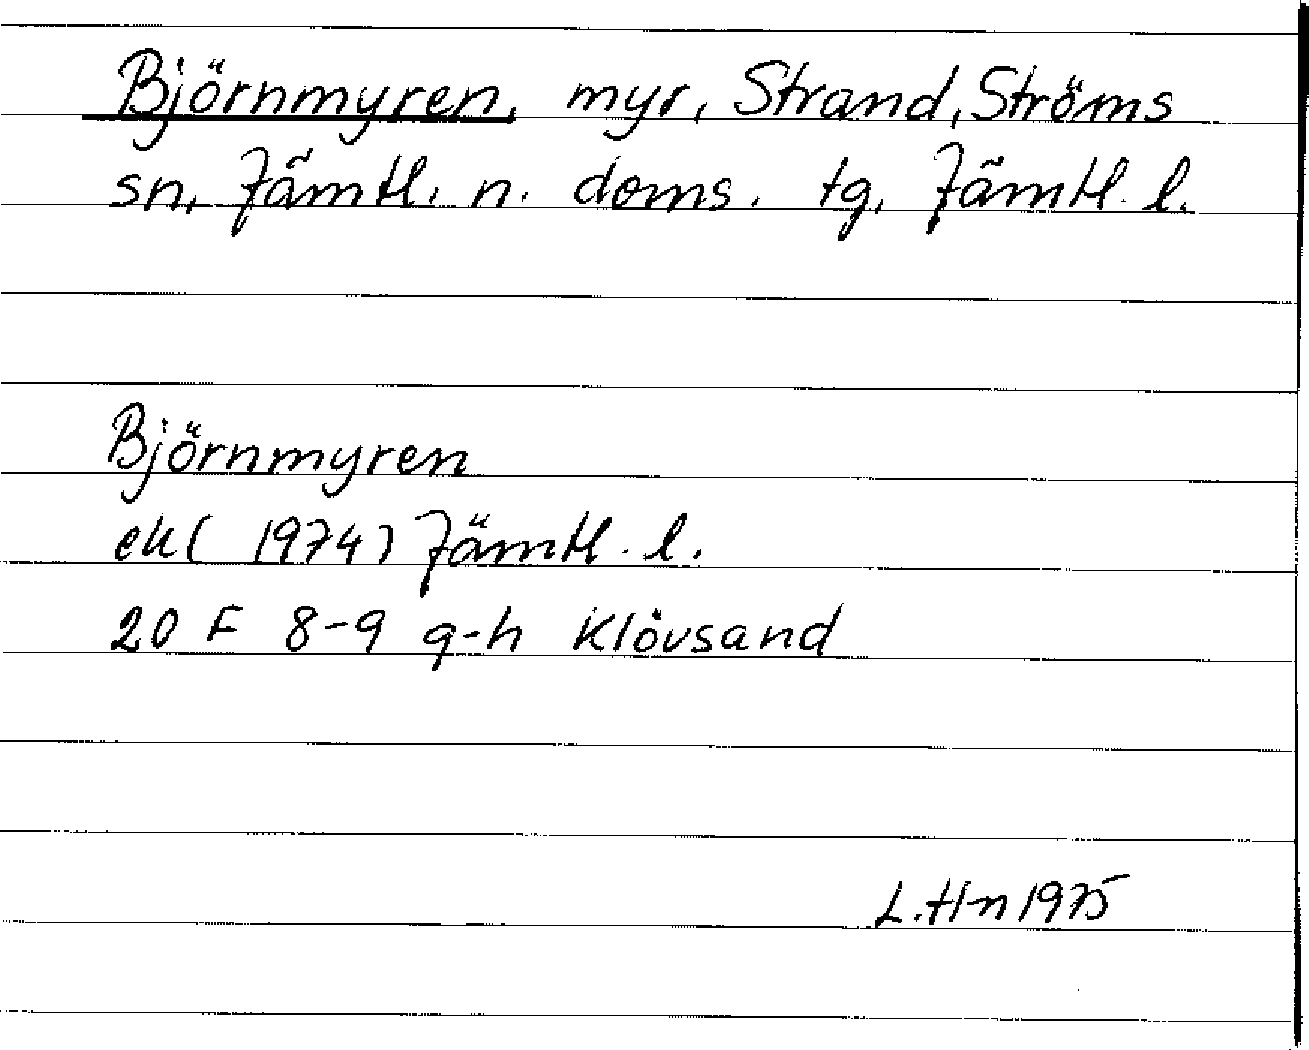 Björnmyren, myr, Strand, Ströms
sn, Jämtl. n. doms. tg, Jämtl. l.
Björnmyren
ek (1974) Jämtl. l.
20 F 8-9 g-h Klövsand
L. Hn 1975